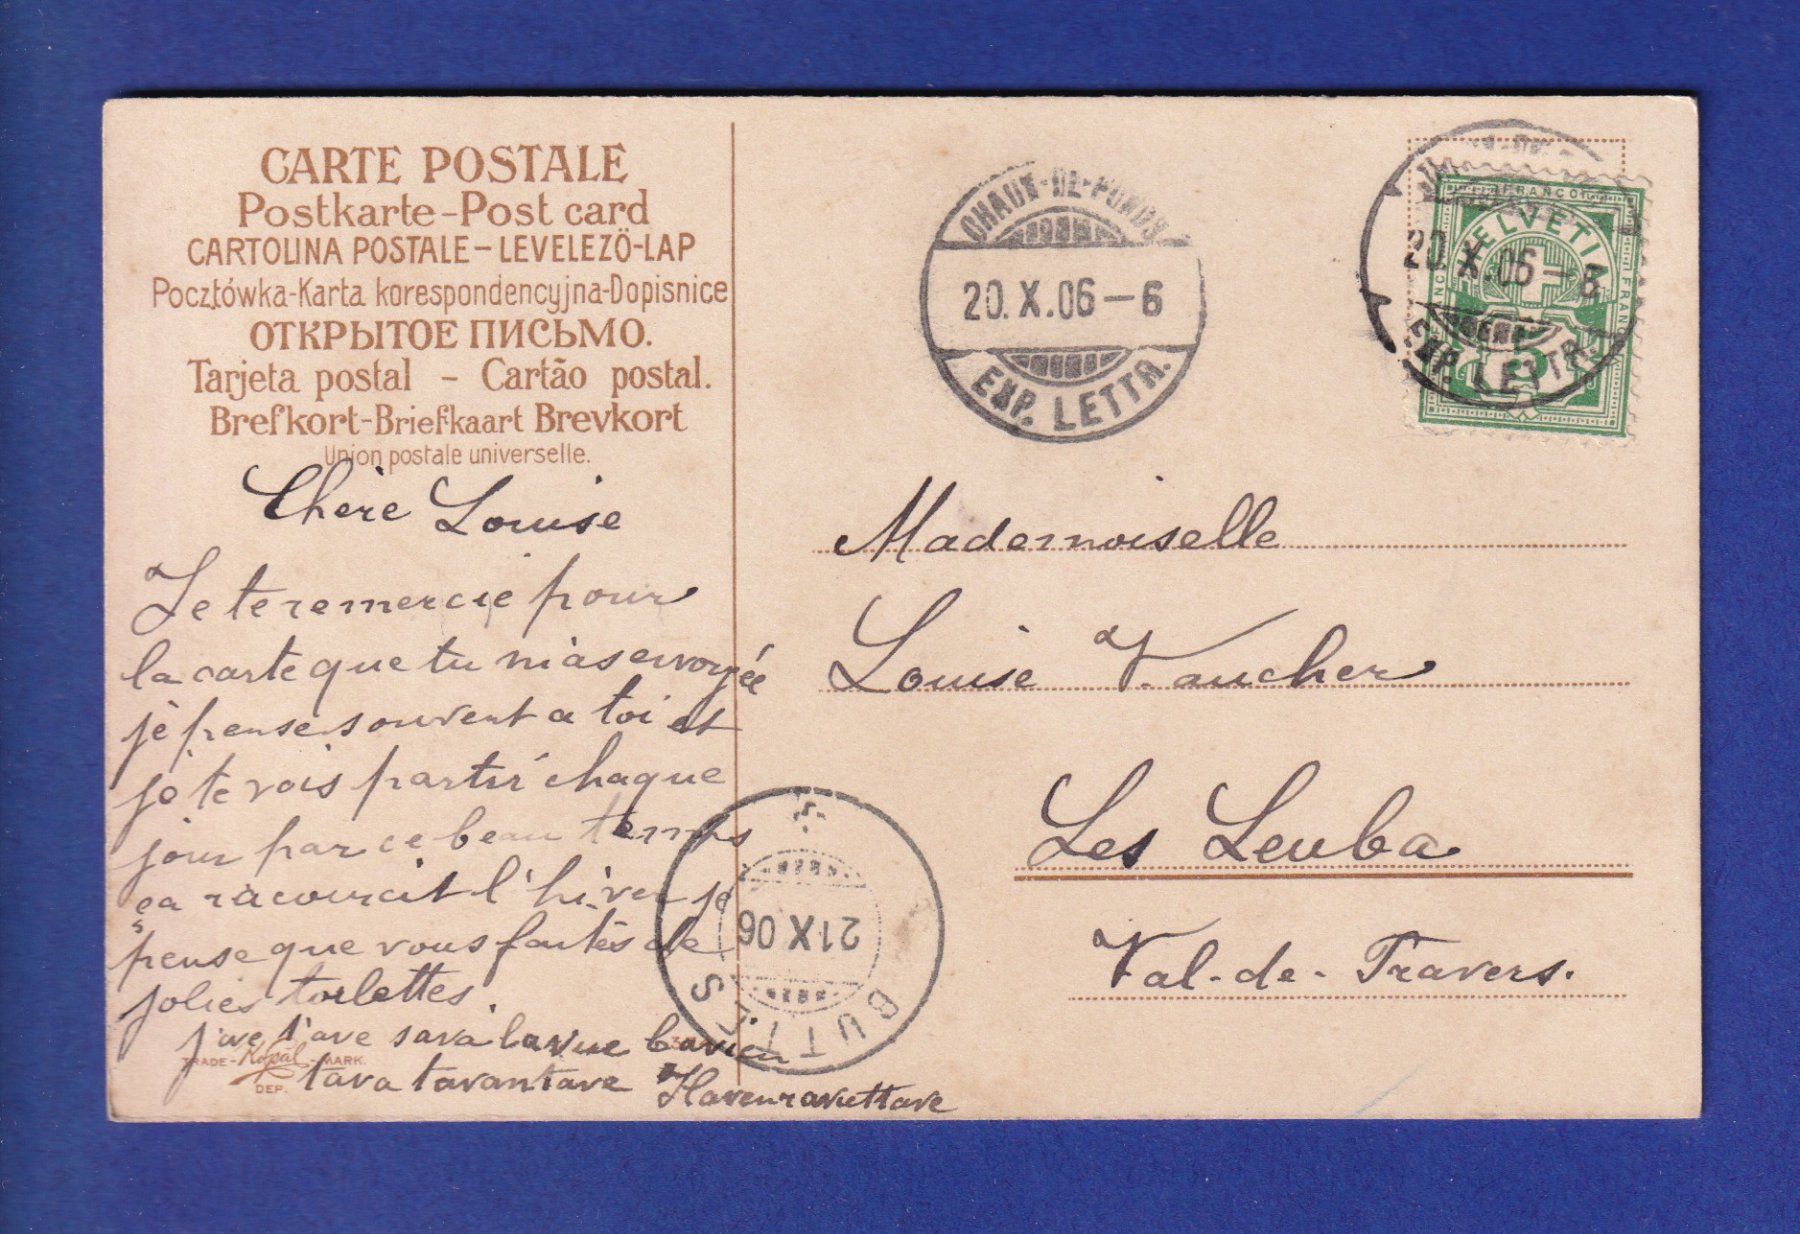 CARTE POSTALE
Postkarte-Post card
CARTOLINA POSTALE-LEVELEZÖ-LAP
Pocztówka-Karta korespondencyjna-Dopisnice
ОТКРЫТОЕ ПИСЬМО.
Tarjeta postal - Cartão postal.
Brefkort-Briefkaart Brevkort
Union postale universelle.
Chère Louise
Je te remercie pour
la carte que tu m'as envoyée
je pense souvent a toi et
je te vois partir chaque
jour par ce beau temps
ça racourcit l'hiver je
pense que vous faites de
jolies toilettes.
TRADE-Kopal-MARK.
DEP.
CHAUX-DE-FONDS
20.X.06-6
EXP. LETTR.
FRANCO
HELVETIA
20.X.06-6
EXP. LETTR.
Mademoiselle
Louise Vaucher
Les Leuba
Val-de-Travers.
21 X 06
BUTTES